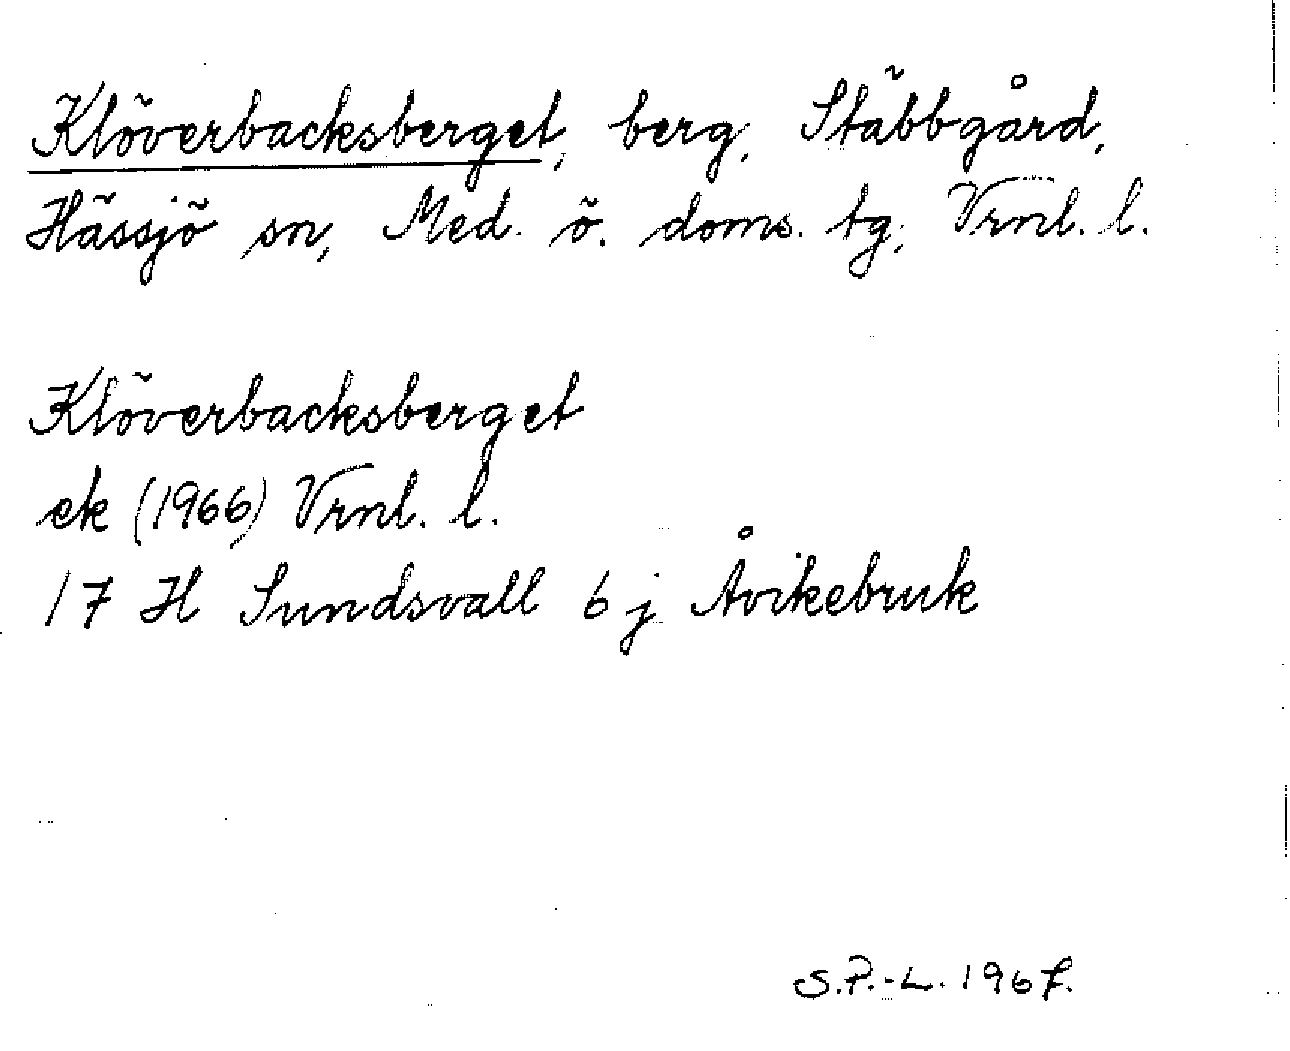 Klöverbacksberget, berg, Stäbbgård,
Hässjö sn, Med. ö. doms. tg, Vrnl. l.
Klöverbacksberget
ek (1966) Vrnl. l.
17 H Sundsvall 6 j Åvikebruk
S.P.-L. 1967.